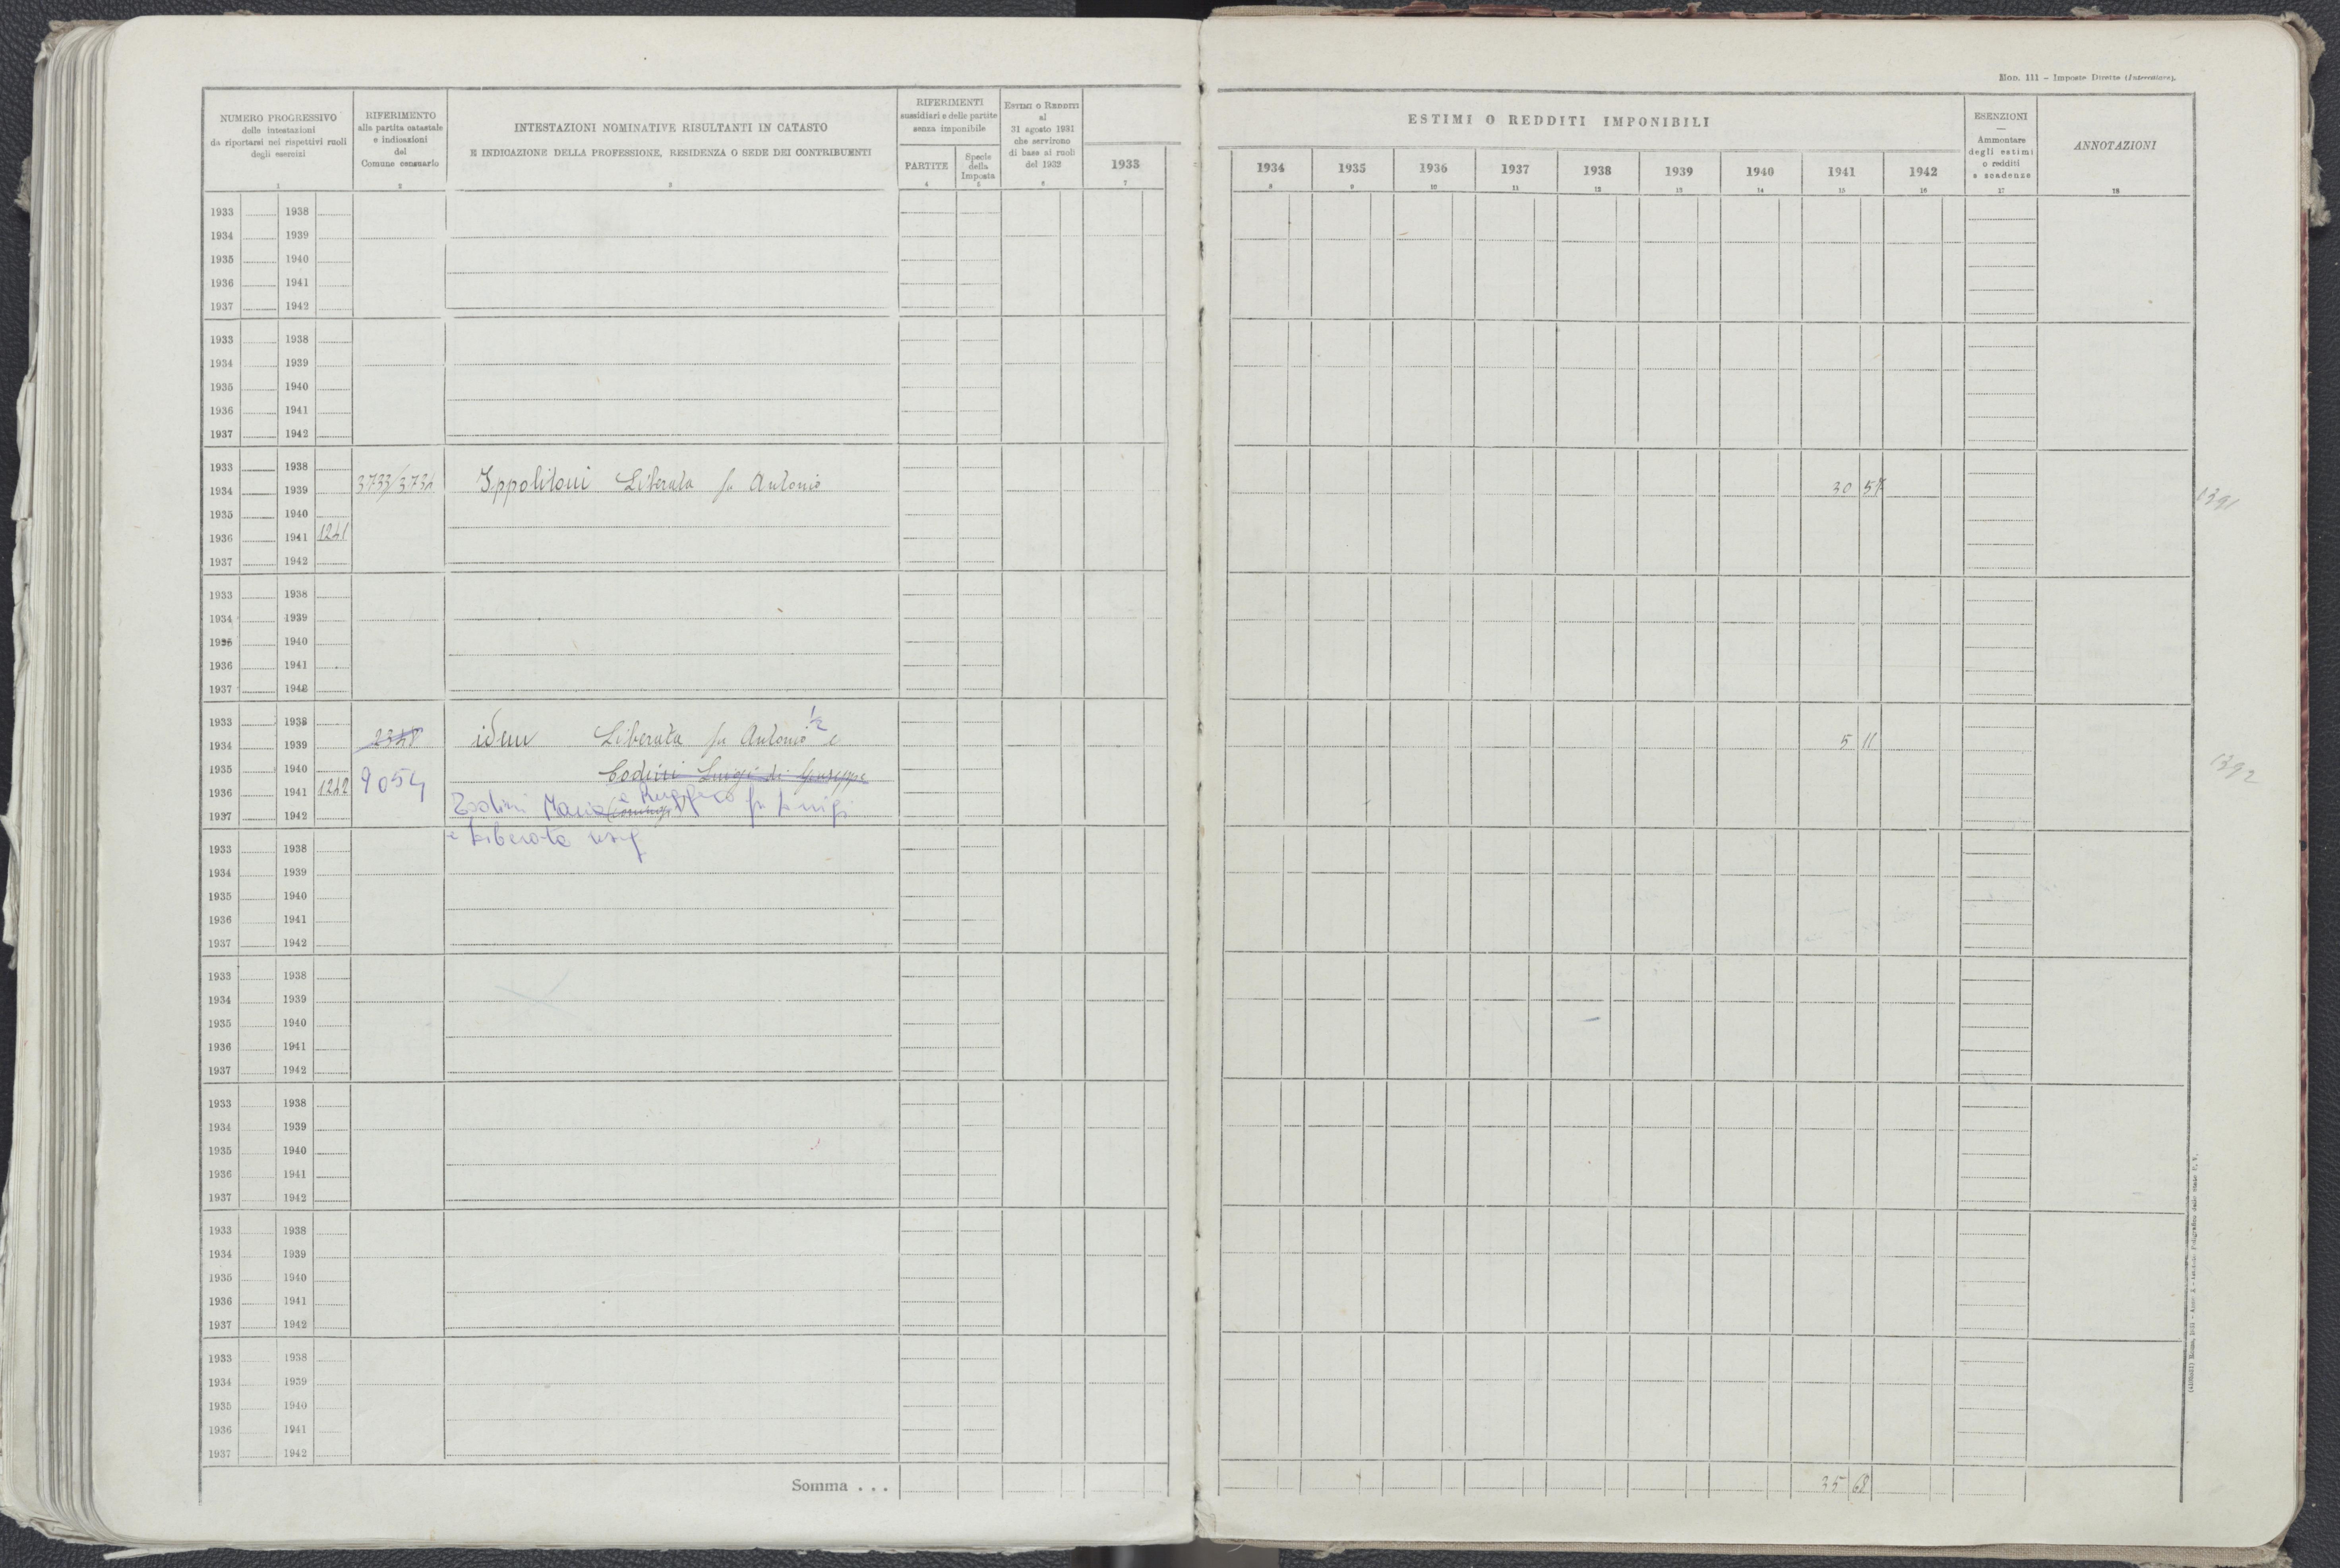 Mod. 111 - Imposte Dirette (Intercalare).
NUMERO PROGRESSIVO
delle intestazioni
da riportarsi nei rispettivi ruoli
degli esercizi
1
RIFERIMENTO
alla partita catastale
e indicazioni
del
Comune censuario
2
INTESTAZIONI NOMINATIVE RISULTANTI IN CATASTO
E INDICAZIONE DELLA PROFESSIONE, RESIDENZA O SEDE DEI CONTRIBUENTI
3
RIFERIMENTI
sussidiari e delle partite
senza imponibile
PARTITE
4
Specie
della
Imposta
5
ESTIMI O REDDITI
al
31 agosto 1931
che servirono
di base ai ruoli
del 1932
6
1933
7
ESTIMI O REDDITI IMPONIBILI
1934 1935 1936 1937 1938 1939 1940 1941 1942
8 9 10 11 12 13 14 15 16
ESENZIONI
Ammontare
degli estimi
o redditi
e scadenze
17
ANNOTAZIONI
18
1933 1938
1934 1939
1935 1940
1936 1941
1937 1942
1933 1938
1934 1939
1935 1940
1936 1941
1937 1942
1933 1938
1934 1939 Ippolitoni Liberata fu Antonio 30 57 1391
1935 1940
1936 1941 1241
1937 1942
1933 1938
1934 1939
1935 1940
1936 1941
1937 1942
1933 1938
1934 1939 2348 idem Liberata fu Antonio 1/2 e 5 11
1935 1940 Codini Luigi di Giuseppe 1392
1936 1941 1242 9054
1937 1942 Maria e Ruggero fu Luigi
e Liberata usuf
1933 1938
1934 1939
1935 1940
1936 1941
1937 1942
1933 1938
1934 1939
1935 1940
1936 1941
1937 1942
1933 1938
1934 1939
1935 1940
1936 1941
1937 1942
1933 1938
1934 1939
1935 1940
1936 1941
1937 1942
1933 1938
1934 1939
1935 1940
1936 1941
1937 1942
Somma . . . 35 68